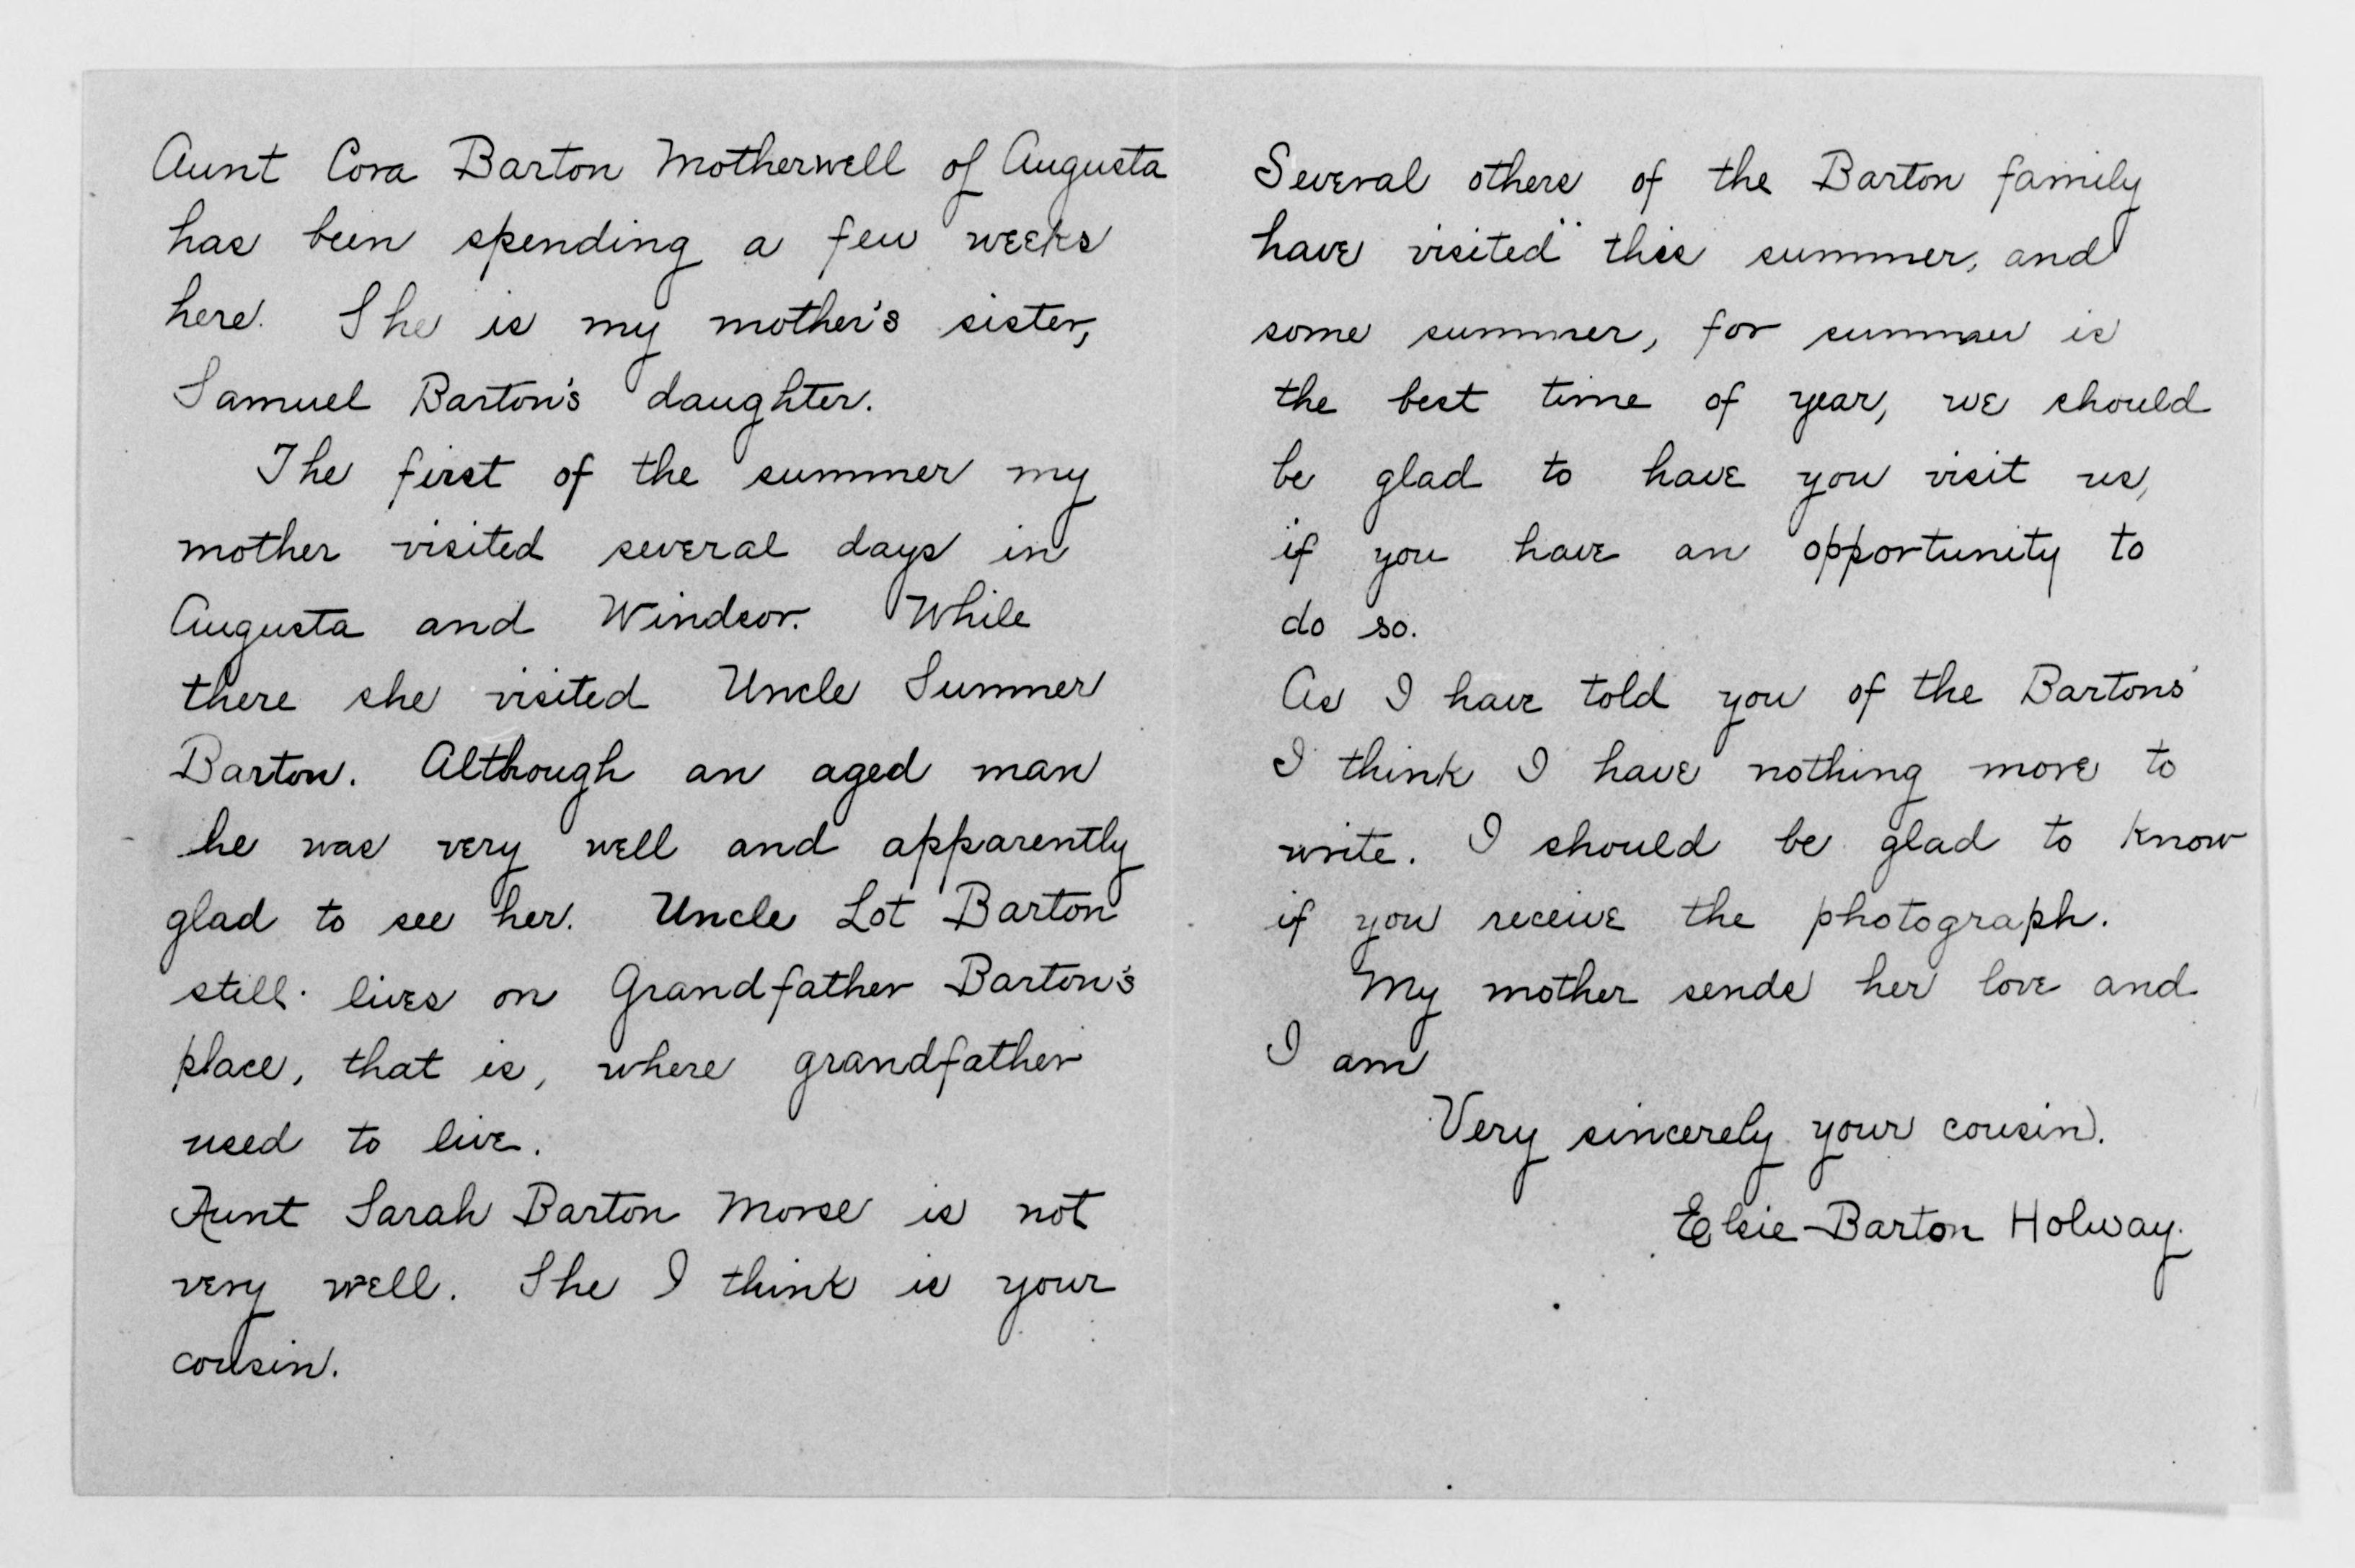 Aunt Cora Barton Motherwell of Augusta
has been spending a few weeks
here. She is my mother's sister,
Samuel Barton's daughter.
The first of the summer my
mother visited several days in
Augusta and Windsor. While
there she visited Uncle Summer
Barton. Although an aged man
he was very well and apparently
glad to see her. Uncle Lot Barton
still lives on Grandfather Barton's
place, that is, where grandfather
used to live.
Aunt Sarah Barton Morse is not
very well. She I think is your
cousin.
Several others of the Barton family
have visited this summer, and
some summer, for summer is
the best time of year, we should
be glad to have you visit us,
if you have an opportunity to
do so.
As I have told you of the Bartons'
I think I have nothing more to
write. I should be glad to know
if you receive the photograph.
My mother sends her love and
I am
Very sincerely your cousin.
Elsie Barton Holway.